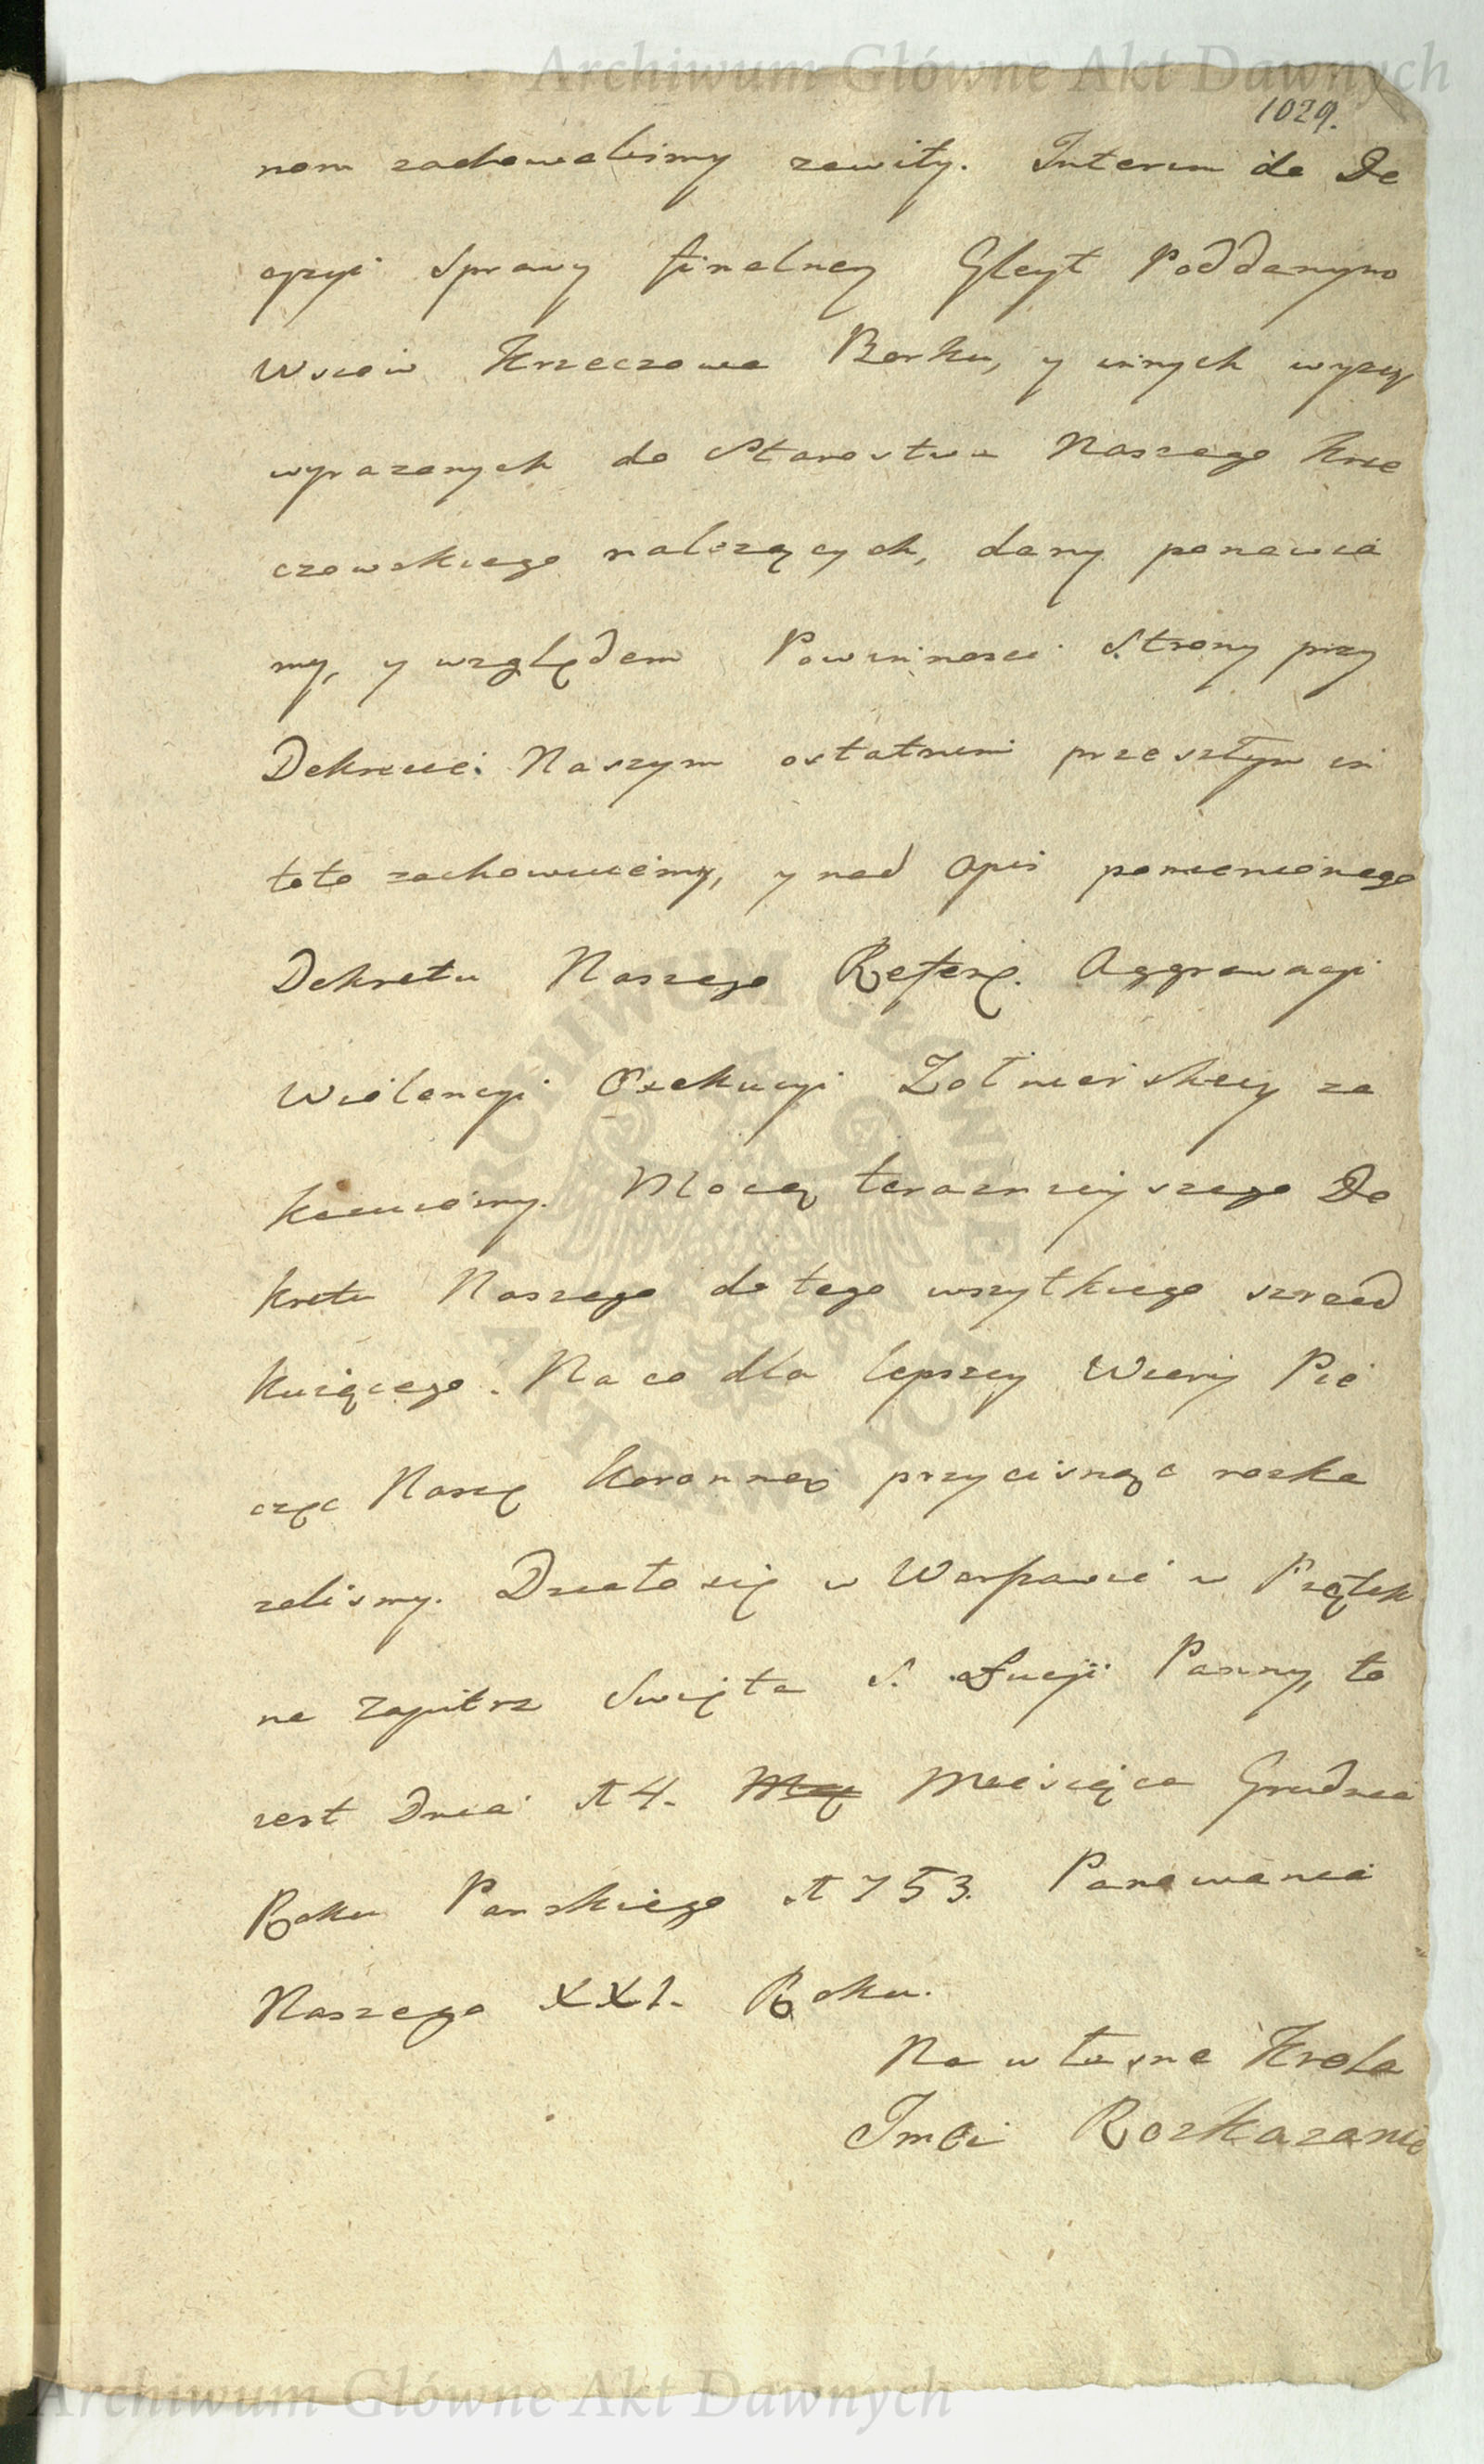 Archiwum Główne Akt Dawnych
1029.
nom zachowalismy zawity. Interim do De
cyzyi Sprawy finalney Gleyt Poddanym
Wsiow Krzeczowa Borku, y innych wyzey
wyrazonych do Starostwa Naszego Krze
czowskiego nalezących, dany ponawia
my, y względem Powinnosci Strony przy
Dekrecie Naszym ostatnim przeszłym in
toto zachowuiemy, y nad Opis pomienionego
Dekretu Naszego Referę. Aggrawacyi
Wiolencyi Exekucyi Zołnierskiey za
kazuiemy. Mocą teraznieyszego De
kretu Naszego do tego wszytkiego
kuiącego. Na co dla lepszey Wiary Pie
częc Naszę Koronną przycisnąc rozka
zalismy. Działo się w Warszawie w Piątek
na Zaiutrz Swięta S. Łucyi Panny, to
iest Dnia 14. Miesiąca Grudnia
Roku Panskiego 1753. Panowania
Naszego XXI. Roku.
Na własne Krola
Jmci Rozkazanie
ARCHIWUM GŁÓWNE
AKT DAWNYCH
Archiwum Główne Akt Dawnych